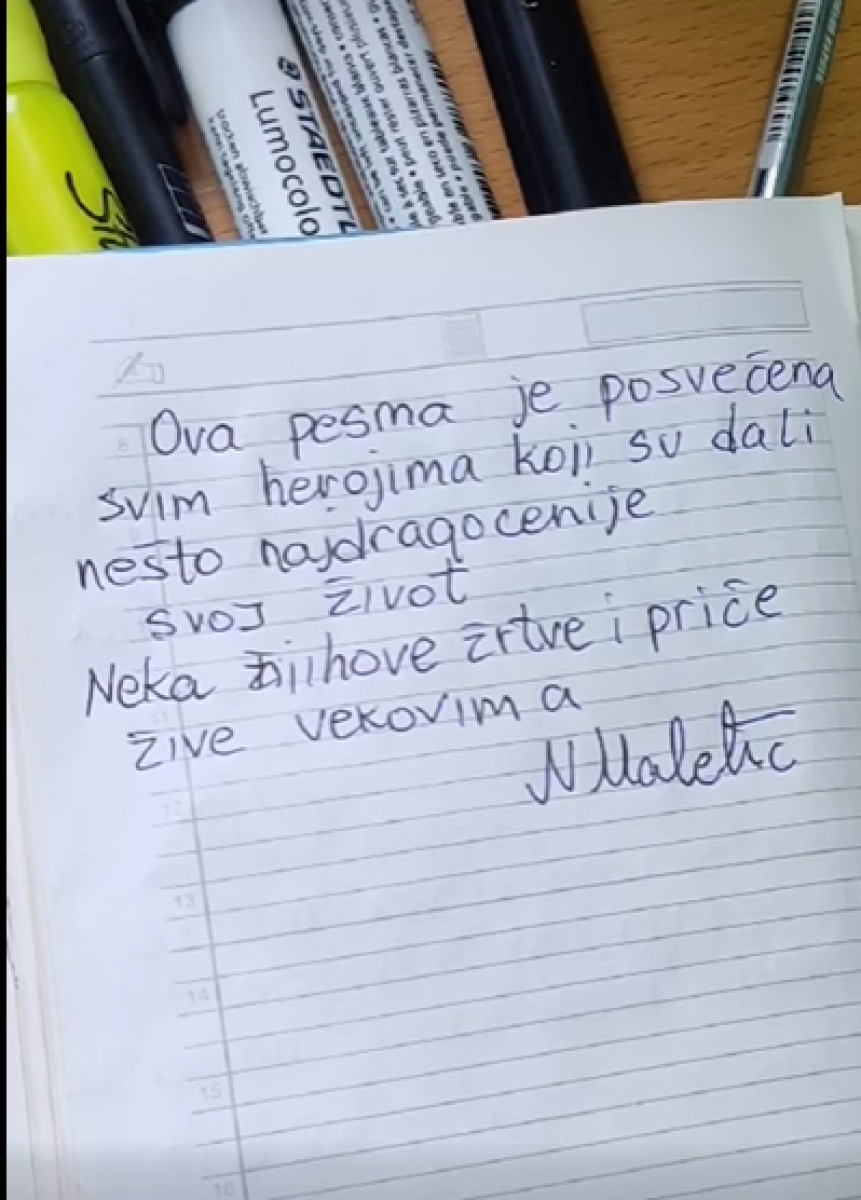 Sha
STAEDTL
Lumocolo
Ova pesma je posvećena
svim herojima koji su dali
nešto najdragocenije
svoj život
Neka njihove žrtve i priče
žive vekovima
N Maletić
8
11
12
13
14
15
16